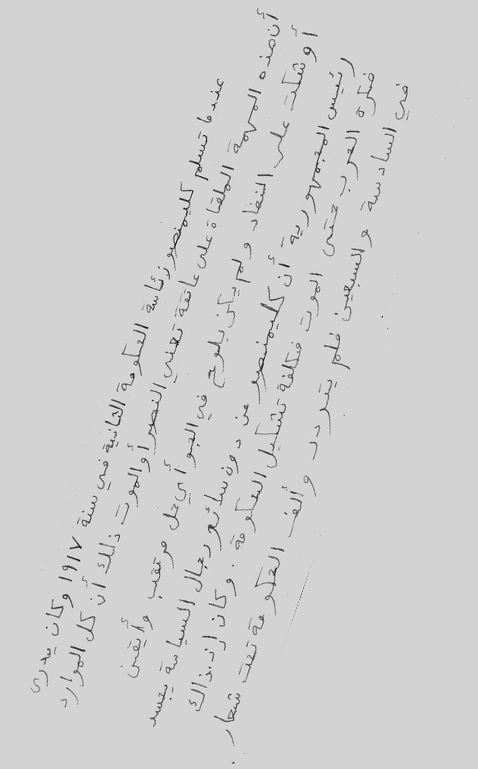 عندما تسلم كليمنصو رئاسة الحكومة الثانية في سنة ١٩١٧ وكان يدري
أن هذه المهمة الملقاة على عاتقة تعني النصر أو الموت ذلك أن كل الموارد
أوشكت على النفاد ولم يكن يلوح في الجو أي حل مرتقب وأيقن
رئيس الجمهورية أن كليمنصو من دون سائر رجال السياسة يجسد
فكرة الحرب حتى الموت فكلفة تشكيل الحكومة . وكان إذ ذاك
في السادسة والسبعين فلم يتردد وألف الحكومة تحت شعار .